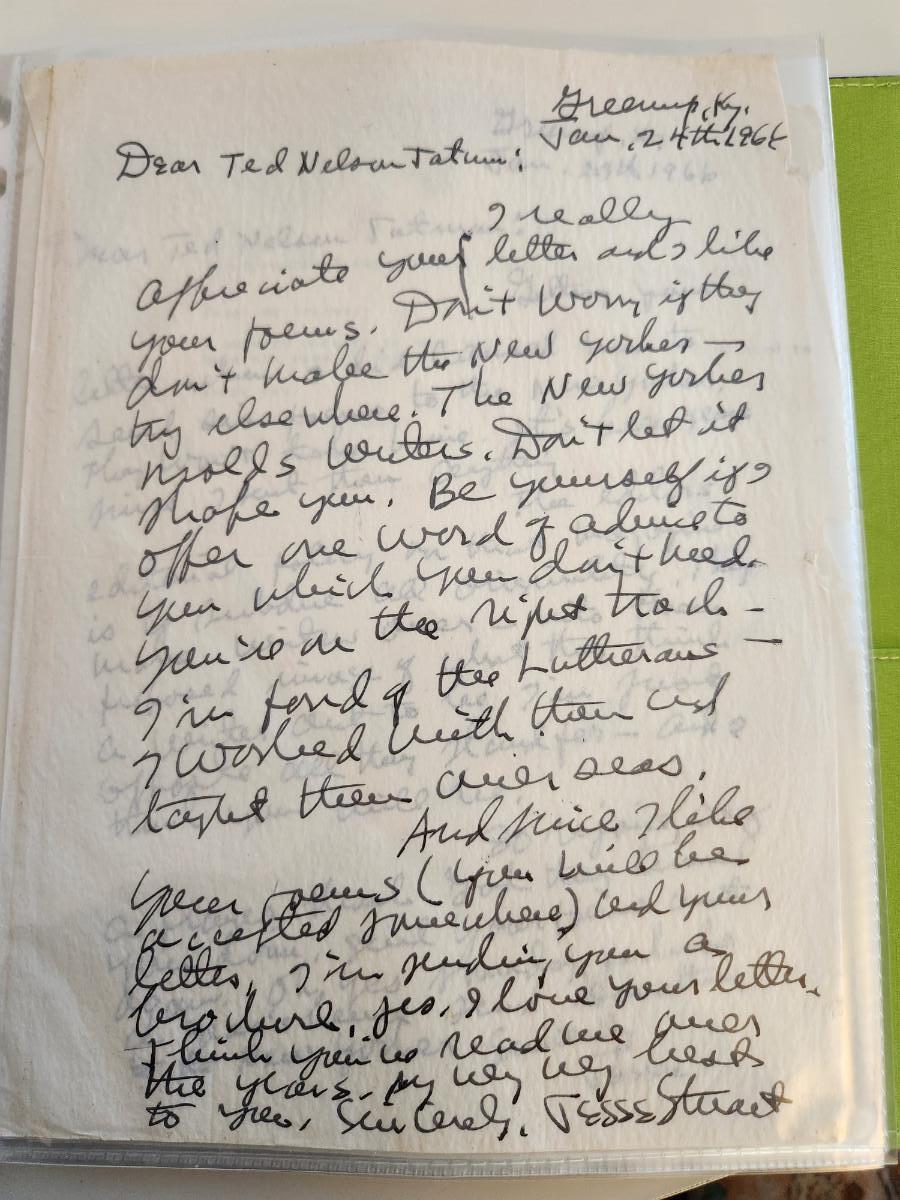 Greenup, Ky.
Jan. 24th 1966
Dear Ted Nelson Tatum:
I really
appreciate your letter and I like
your poems. Don't worry if they
don't make the New Yorker —
try elsewhere. The New Yorker
molds writers. Don't let it
shape you. Be yourself if I
offer one word of advice to
you which you don't need.
You're on the right track —
I'm fond of the Lutherans —
I worked with them and
taght them over seas.
And since I like
your poems (you will be
accepted somewhere) and your
letter, I'm sending you a
brochure. Yes, I love your letter.
Think you've read me over
the years. My very very best
to you, Sincerely, Jesse Stuart